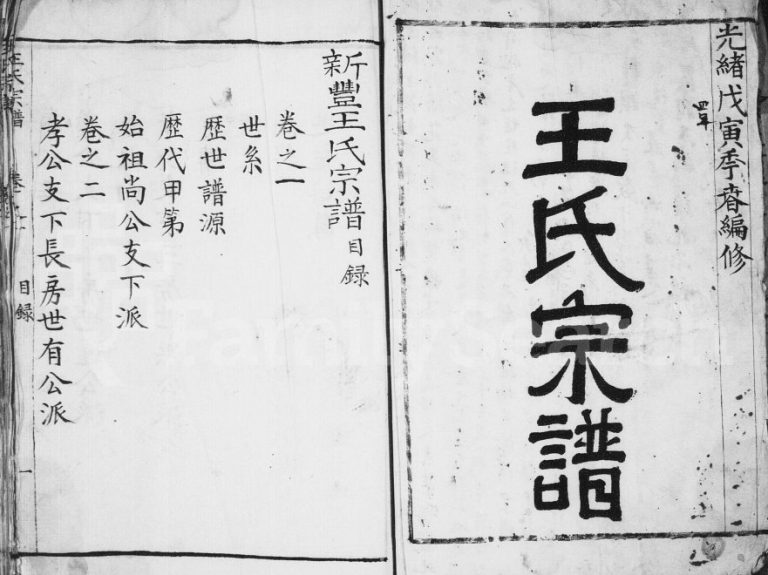 光緒戊寅季春編修
王氏宗譜
新豐王氏宗譜目録
卷之一
世系
歷世譜源
歷代甲第
始祖尚公支下派
卷之二
孝公支下長房世有公派
王氏宗譜
目録
一